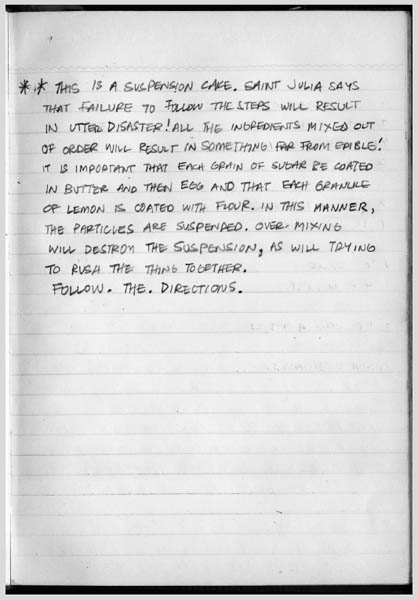 ** THIS IS A SUSPENSION CAKE. SAINT JULIA SAYS
THAT FAILURE TO FOLLOW THE STEPS WILL RESULT
IN UTTER DISASTER! ALL THE INGREDIENTS MIXED OUT
OF ORDER WILL RESULT IN SOMETHING FAR FROM EDIBLE!
IT IS IMPORTANT THAT EACH GRAIN OF SUGAR BE COATED
IN BUTTER AND THEN EGG AND THAT EACH GRANULE
OF LEMON IS COATED WITH FLOUR. IN THIS MANNER,
THE PARTICLES ARE SUSPENDED. OVER-MIXING
WILL DESTROY THE SUSPENSION, AS WILL TRYING
TO RUSH THE THING TOGETHER.
FOLLOW. THE. DIRECTIONS.